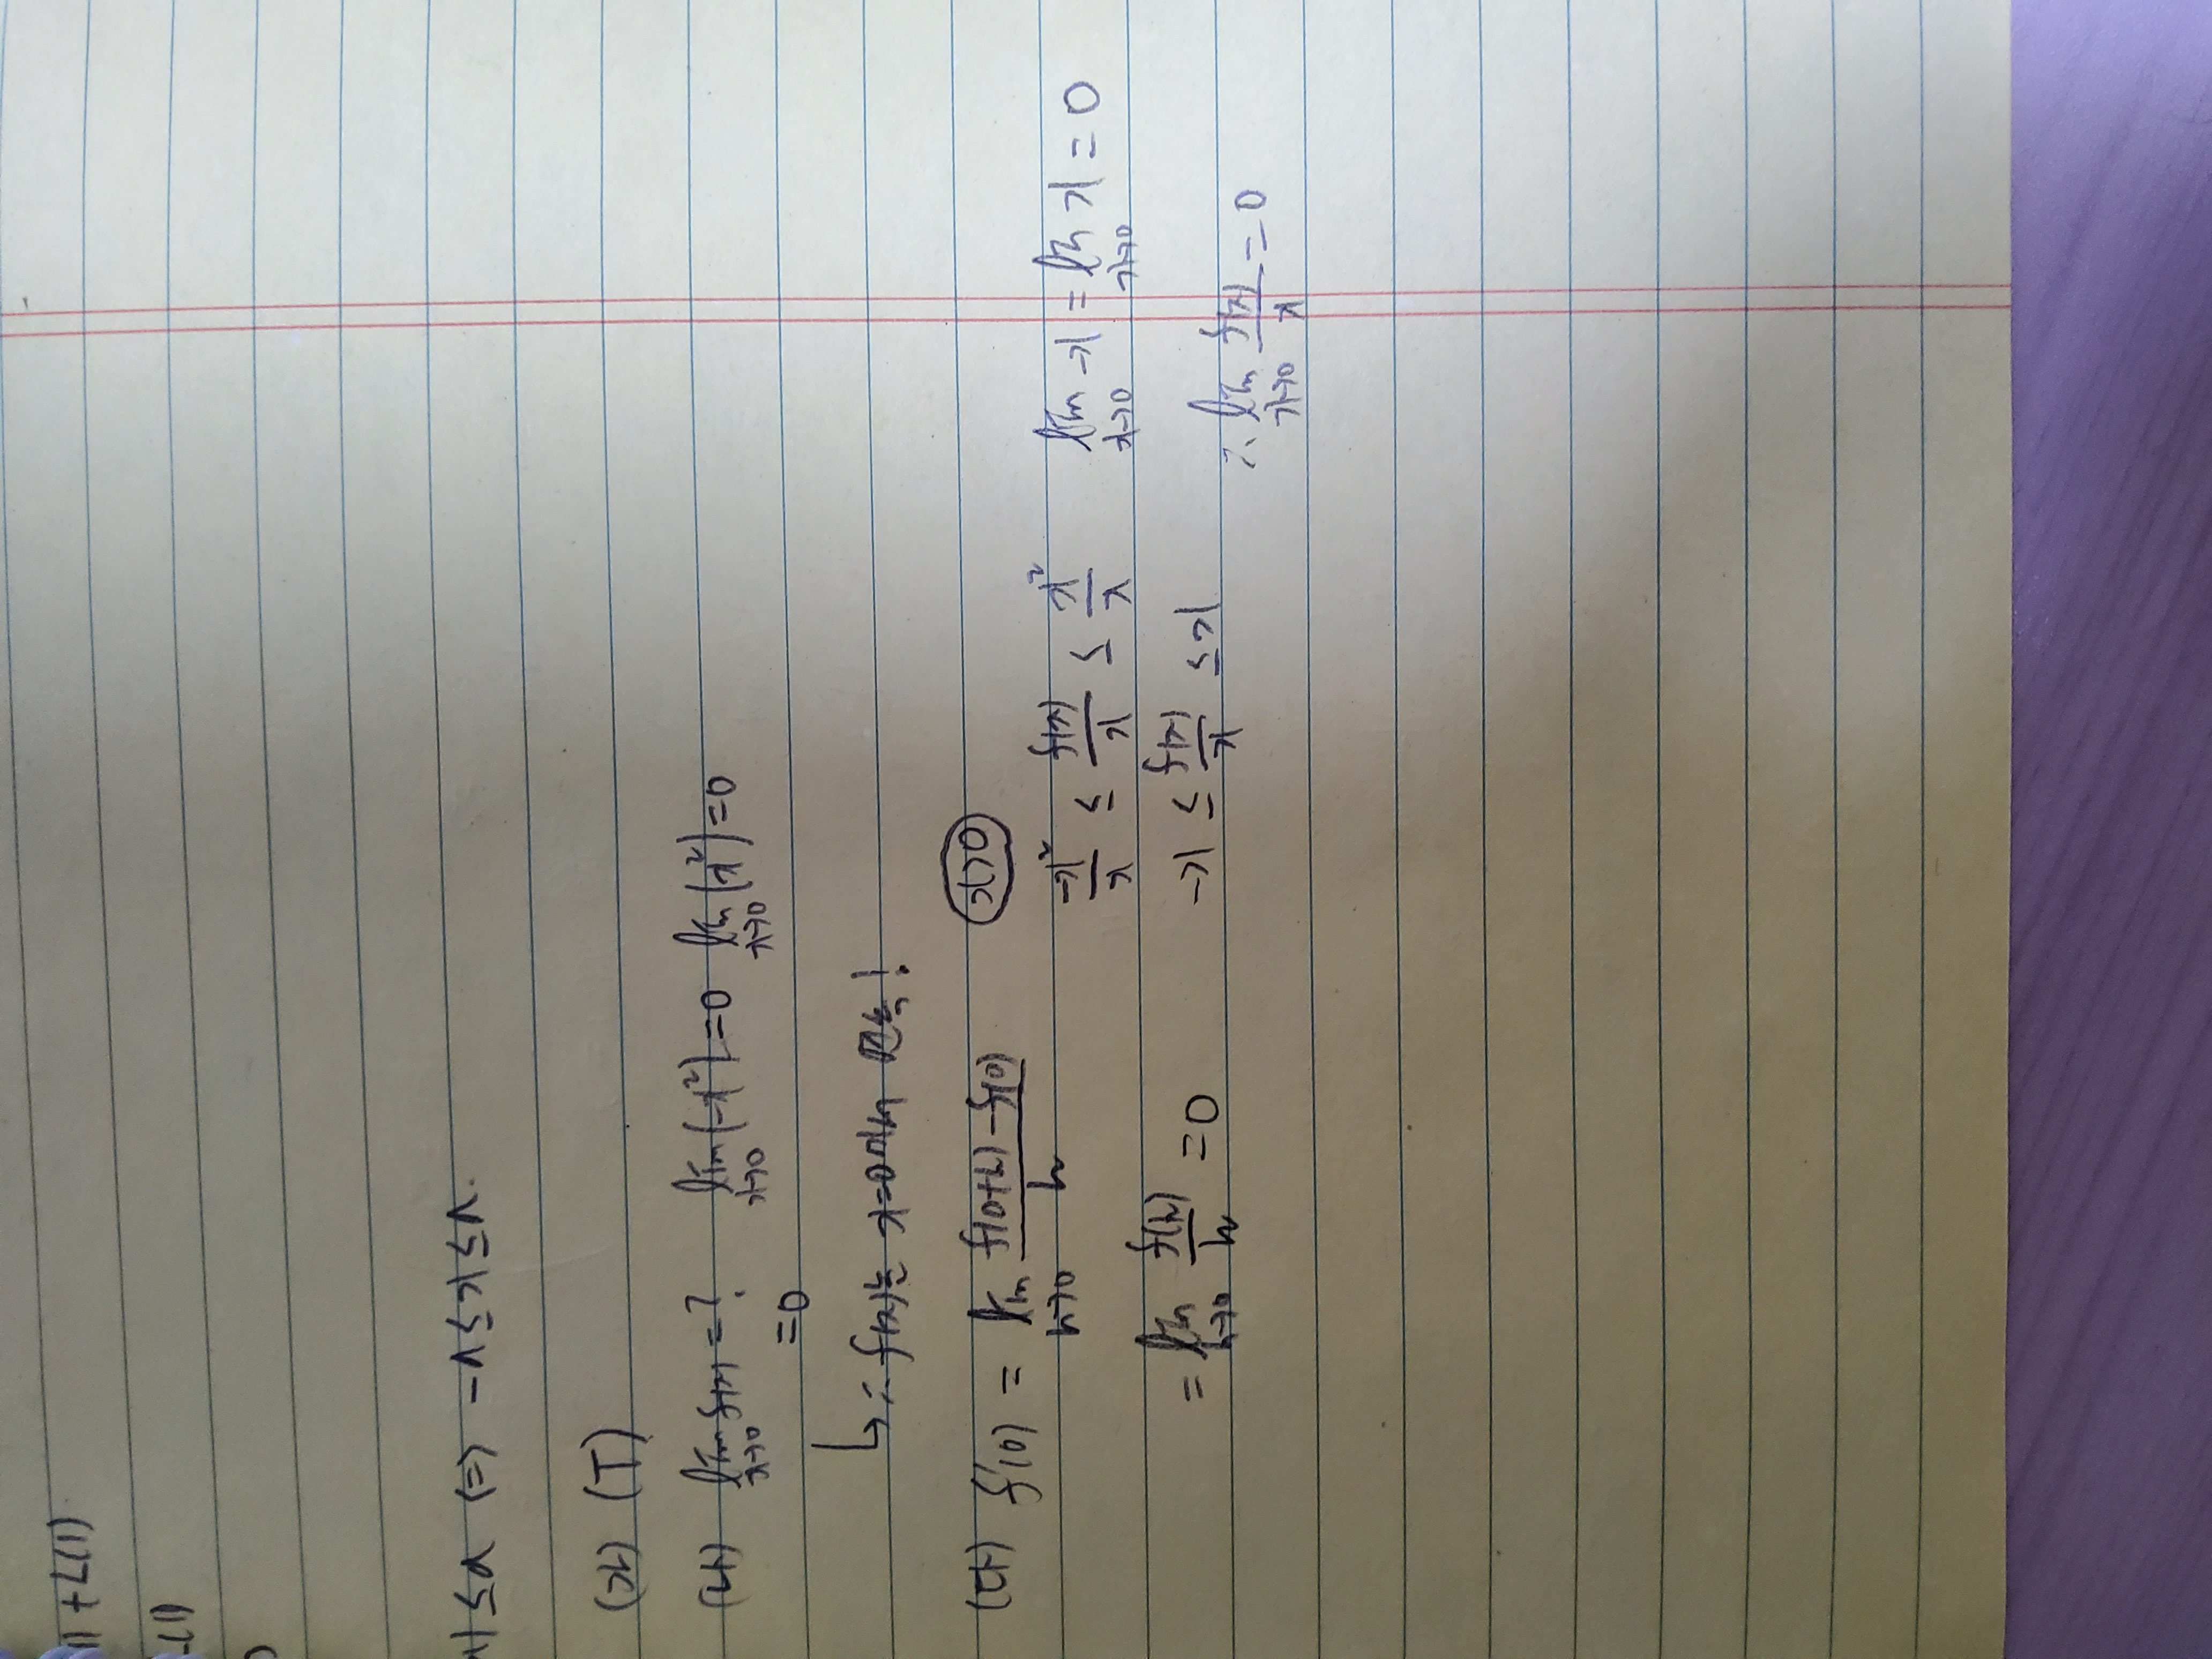 1) + L(1)
-L(1)
x| ≤ A ⟺ -A ≤ x ≤ A.
(가) (T)
(나) lim_{x→0} f(x) = ? lim_{x→0} (-x²) = 0 lim_{x→0} (x²) = 0
= 0
↳ ∴ f(x)는 x=0에서 연속!
(다) f'(0) = lim_{h→0} \frac{f(0+h)-f(0)}{h}
= lim_{h→0} \frac{f(h)}{h} = 0
x>0
\frac{-x²}{x} ≤ \frac{f(x)}{x} ≤ \frac{x²}{x}
-x ≤ \frac{f(x)}{x} ≤ x
lim_{x→0} -x = lim_{x→0} x = 0
∴ lim_{x→0} \frac{f(x)}{x} = 0